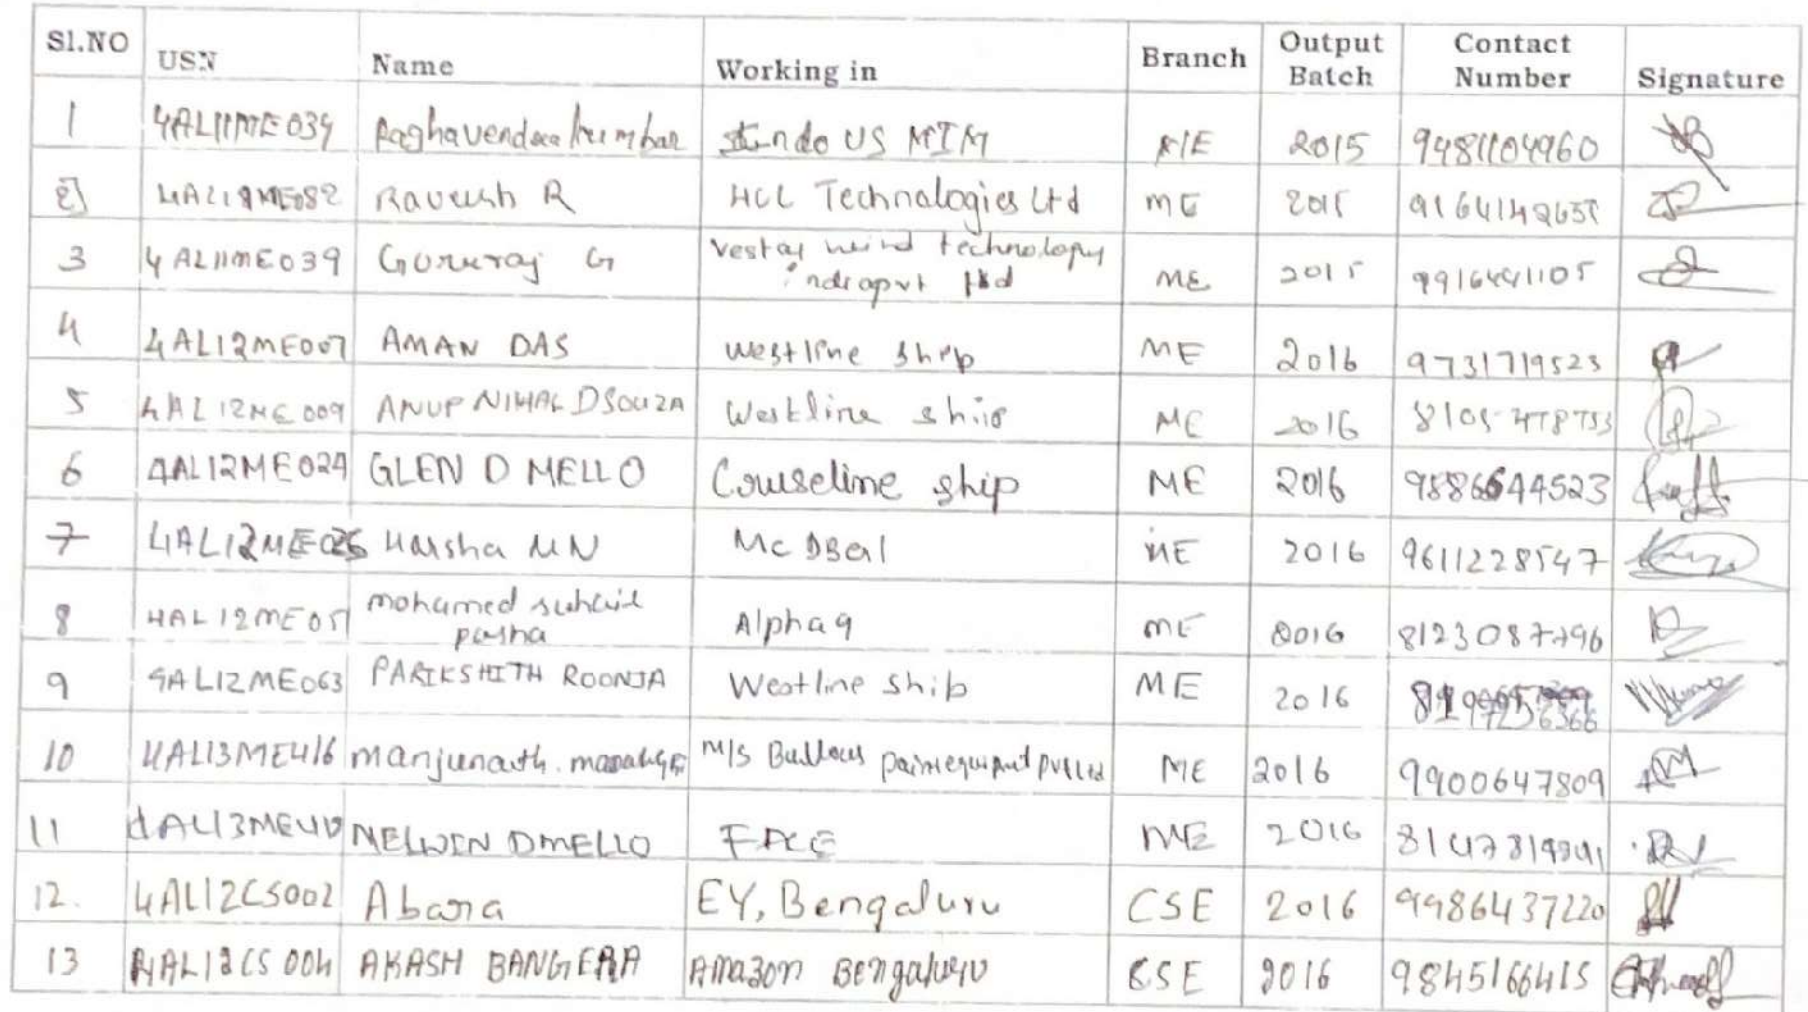 Sl.NO USN Name Working in Branch Output Batch Contact Number Signature
1 4AL11ME034 Raghavendra kumbar Indo US MIM ME 2015 9481104960
2] ME082 R HCL Technologies Ltd ME 2015
3 4AL11ME039 Gururaj G wind technology ME 2015
4 4AL12ME007 AMAN DAS westline ship ME 2016 9731719523
5 4AL12ME009 ANUP NIHAL DSOUZA Westline ship ME 2016 8105478753
6 4AL12ME024 GLEN D MELLO Couseline ship ME 2016 9886644523
7 4AL12ME026 Harsha M N ME 2016 9611228547
8 4AL12ME051 mohamed suhail pasha Alpha 9 ME 2016
9 4AL12ME063 PARIKSHITH ROONJA Westline ship ME 2016
10 4AL13ME416 manjunath. M/s Bullows ME 2016 9900647809
11 MELWIN DMELLO FACE ME 2016
12. 4AL12CS002 Abara EY, Bengaluru CSE 2016 9986437220
13 4AL12CS004 AKASH BANGERA Amazon Bengaluru CSE 2016 9845166415